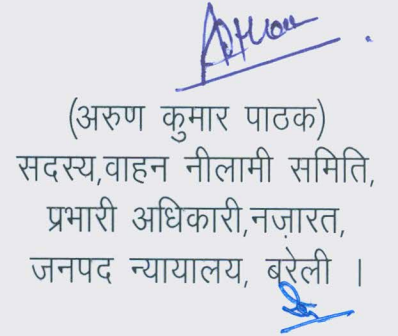 (अरुण कुमार पाठक)
सदस्य,वाहन नीलामी समिति,
प्रभारी अधिकारी,नज़ारत,
जनपद न्यायालय, बरेली ।